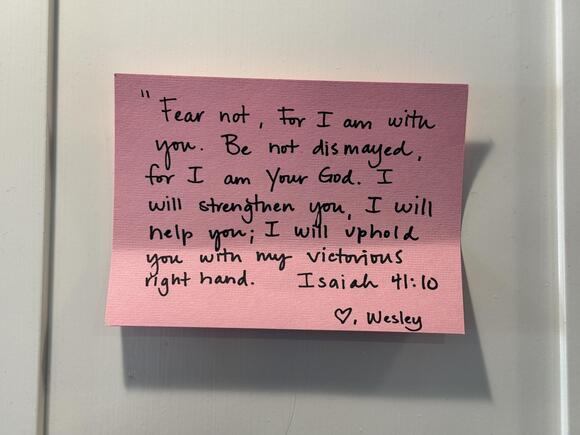 " Fear not, For I am with
you. Be not dismayed,
for I am Your God. I
will strengthen you, I will
help you; I will uphold
you with my victorious
right hand. Isaiah 41:10
♡, Wesley